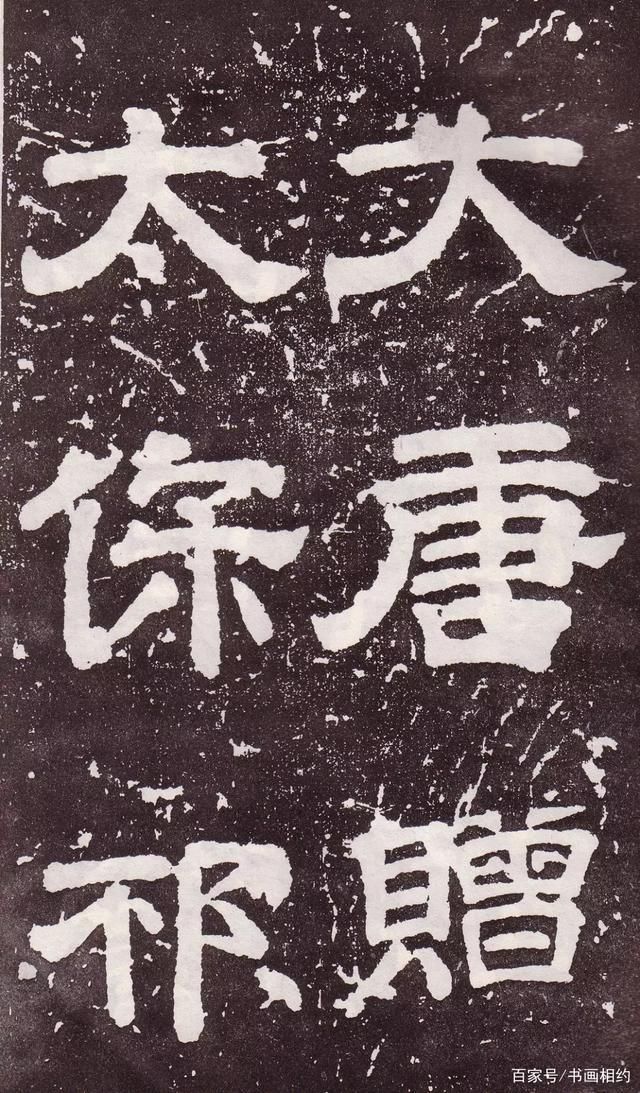 大唐贈
太保祁
百家号/书画相约